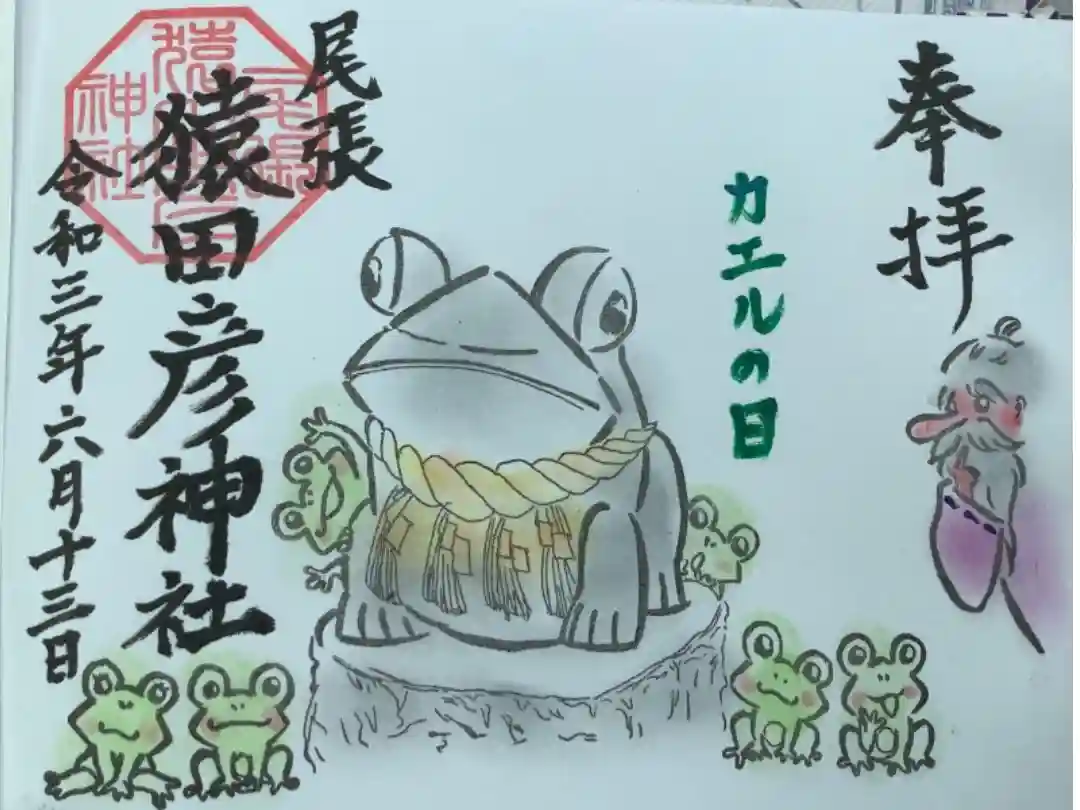 奉拝
カエルの日
尾張
猿田彦神社
令和三年六月十三日